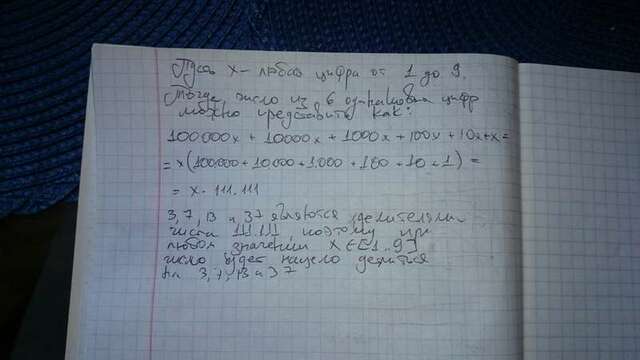 Пусть x - любая цифра от 1 до 9.
Тогда число из 6 одинаковых цифр
можно представить как:
100000x + 10000x + 1000x + 100x + 10x + x =
= x(100000 + 10.000 + 1.000 + 100 + 10 + 1) =
= x · 111.111
3, 7, 13 и 37 являются делителями
числа 111.111, поэтому при
любом значении x ∈ [1..9]
число будет нацело делиться
на 3, 7, 13 и 37